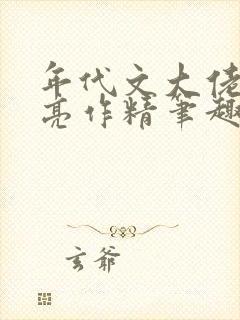 年代文大佬
亮作精笔趣
玄爷